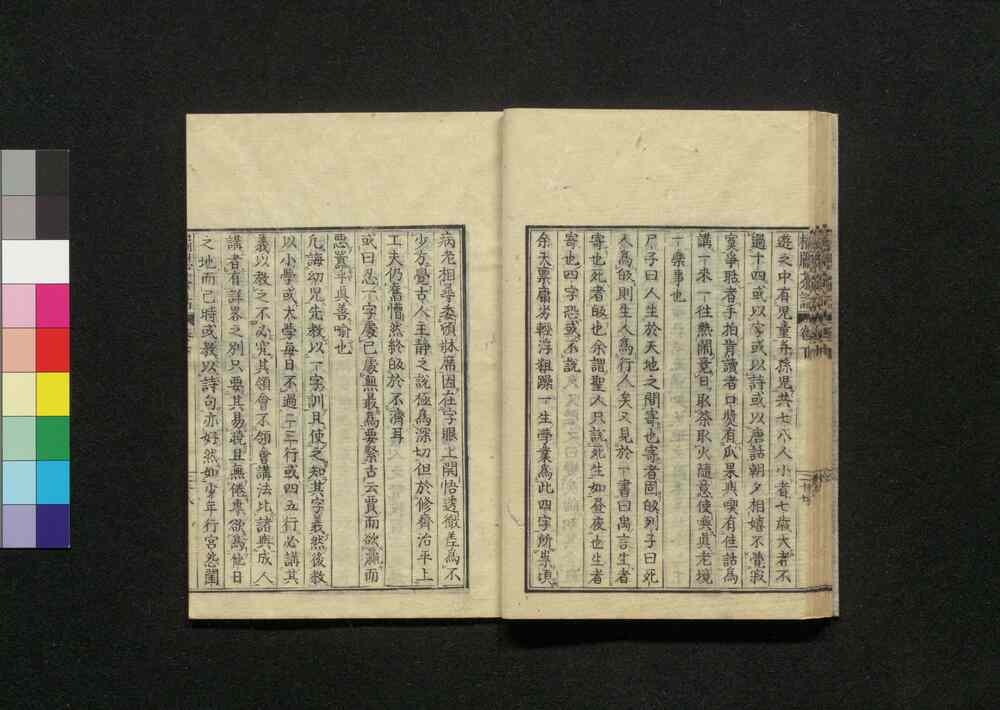 遊之中有児童赤孫児共七八人小者七歳大者不
過十四或以字或以詩或以唐話朝夕相嬉不覚寂
寞爭勝者手拍背讀者口煖有瓜果與喫有佳話為
講一來一往熱鬧竟日取茶取火隨意使喚真老境
一樂事也
尸子曰人生於天地之間寄也寄者固皈列子曰死
人為皈則生人為行人矣又見於一書曰禹言生者
寄也死者皈也余謂聖人只說死生如昼夜也生者
寄也四字恐或不說
余天禀庸劣輕浮粗躁一生學業為此四字所祟頃
病老相尋委頓牀席因在字眼上開悟透徹差為不
少方覺古人主靜之說極為深切但於修齊治平上
工夫仍舊懵然終皈於不濟耳
或曰忍一字處己處無最為要緊古云賈而欲贏而
惡囂乎真善喻也
凢誨幼児先教以一字訓且使之知其字義然後教
以小學或大學每日不過二三行或四五行必講其
義以教之不必究其領會不領會講法比諸與成人
講者有詳畧之別只要其易曉且無倦專欲為他日
之地而已時或教以詩句亦好然如少年行宮怨閨